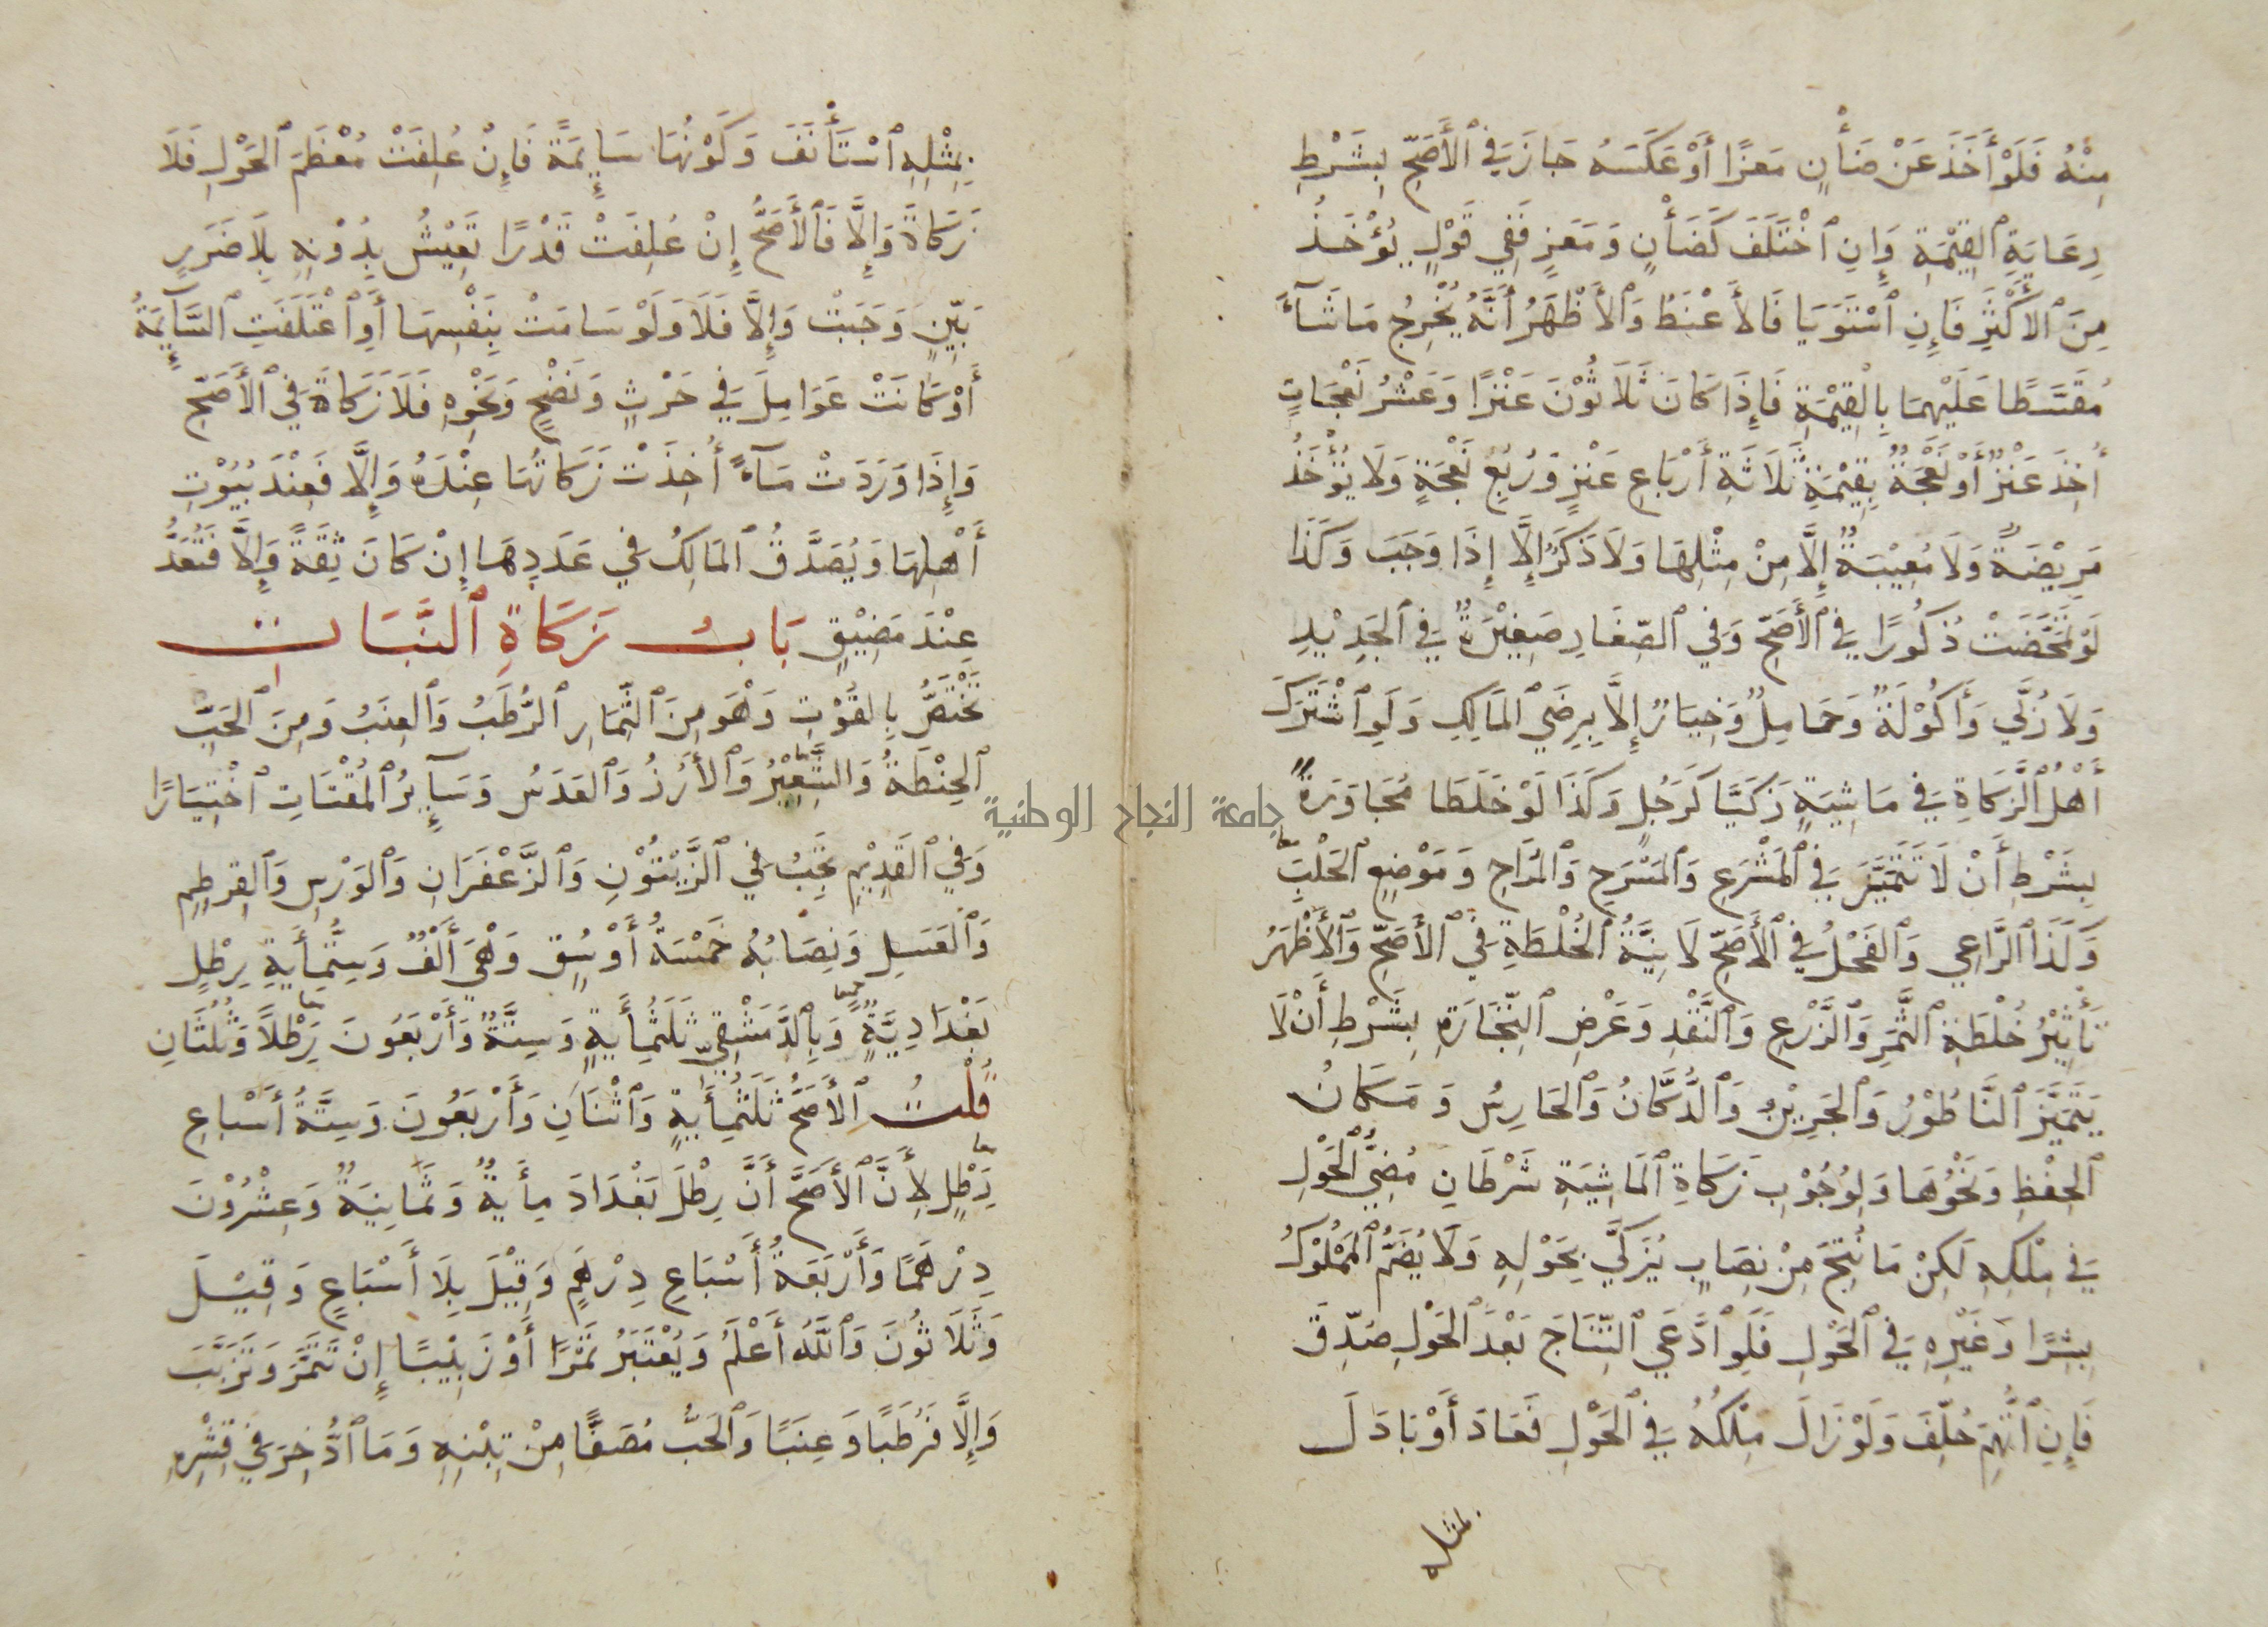 مِنْهُ فَلَوْ أَخَذَ عَنْ ضَأْنٍ مَعزًا أَوْ عَكَسَهُ جَازَ فِي ٱلْأَصَحِّ بِشَرْطِ
رِعَايَةِ ٱلقِيْمَةِ وَإِنِ ٱخْتَلَفَ كَضَأْنٍ وَمَعزٍ فَفِي قَوْلٍ يُؤْخَذُ
مِنَ ٱلأَكْثَرِ فَإِنِ ٱسْتَوَيَا فَالأَغْبَطُ وَٱلأَظْهَرُ أَنَّهُ يُخْرِجُ مَا شَآءَ
مُقَسَّطًا عَلَيْهِمَا بِالْقِيْمَةِ فَإِذَا كَانَ ثَلَاثُوْنَ عَنْزًا وَعَشْرُ نَعْجَاتٍ
أُخِذَ عَنْزٌ أَوْ نَعْجَةٌ بِقِيْمَةِ ثَلَاثَةِ أَرْبَاعِ عَنْزٍ وَرُبُعِ نَعْجَةٍ وَلَا يُؤْخَذُ
مَرِيْضَةٌ وَلَا مَعِيْبَةٌ إِلَّا مِنْ مِثْلِهَا وَلَا ذَكَرٌ إِلَّا إِذَا وَجَبَ وَكَذَا
لَوْ تَمَحَّضَتْ ذُكُورًا فِي ٱلْأَصَحِّ وَفِي ٱلصِّغَارِ صَغِيْرَةٌ فِي ٱلجَدِيْدِ
وَلَا رُبَّي وَأَكُوْلَةٌ وَحَامِلٌ وَخِيَارٌ إِلَّا بِرِضَي ٱلمَالِكِ وَلَوِ ٱشْتَرَكَ
أَهْلُ ٱلزَّكَاةِ فِي مَاشِيَةٍ زَكَيَّا كَرَجُلٍ وَكَذَا لَوْ خَلَطَا مُجَاوَرَةً
بِشَرْطِ أَنْ لَا تَتَمَيَّزَ فِي ٱلْمَشْرَعِ وَٱلمَسْرَحِ وَٱلْمُرَاحِ وَمَوْضِعِ ٱلحَلْبِ
وَكَذَا ٱلرَّاعِي وَٱلفَحْلُ فِي ٱلْأَصَحِّ لَا نِيَّةُ ٱلخُلْطَةِ فِي ٱلأَصَحِّ وَٱلْأَظْهَرُ
تَأْثِيْرُ خُلْطَةِ ٱلثَّمَرِ وَٱلزَّرْعِ وَٱلنَّقْدِ وَعَرْضِ ٱلتِّجَارَةِ بِشَرْطِ أَنْ لَا
يَتَمَيَّزَ ٱلنَّاطُوْرُ وَٱلْجَرِيْنُ وَٱلدُّكَّانُ وَٱلحَارِسُ وَمَكَانُ
ٱلحِفْظِ وَنَحْوُهَا وَلِوُجُوْبِ زَكَاةِ ٱلمَاشِيَةِ شَرْطَانِ مُضِيُّ ٱلْحَوْلِ
فِي مِلْكِهِ لَكِنْ مَا نُتِجَ مِنْ نِصَابٍ يُزَكَّي بِحَوْلِهِ وَلَا يُضَمُّ ٱلْمَمْلُوْكُ
بِشِرًا وَغَيْرِهِ فِي ٱلحَوْلِ فَلَوِ ٱدَّعَي ٱلنِّتَاجَ بَعْدَ ٱلْحَوْلِ صُدِّقَ
فَإِنِ ٱتُّهِمَ حُلِّفَ وَلَوْ زَالَ مِلْكُهُ فِي ٱلْحَوْلِ فَعَادَ أَوْ بَادَلَ
بمثله
بِمِثْلِهِ ٱسْتَأْنَفَ وَكَوْنُهَا سَايِمَةً فَإِنْ عُلِفَتْ مُعْظَمَ ٱلحَوْلِ فَلَا
زَكَاةَ وَإِلَّا فَٱلْأَصَحُّ إِنْ عُلِفَتْ قَدْرًا تَعِيْشُ بِدُوْنِهِ بِلَا ضَرَرٍ
بَيِّنٍ وَجَبَتْ وَإِلَّا فَلَا وَلَوْ سَامَتْ بِنَفْسِهَا أَوِ ٱعْتَلَفَتِ ٱلسَّآيِمَةُ
أَوْ كَانَتْ عَوَامِلَ فِي حَرْثٍ وَنَضْحٍ وَنَحْوِهِ فَلَا زَكَاةَ فِي ٱلْأَصَحِّ
وَإِذَا وَرَدَتْ مَآءً أُخِذَتْ زَكَاتُهَا عِنْدَهُ وَإِلَّا فَعِنْدَ بُيُوْتِ
أَهْلِهَا وَيُصَدَّقُ ٱلمَالِكُ فِي عَدَدِهَا إِنْ كَانَ ثِقَةً وَإِلَّا فَتُعَدُّ
عِنْدَ مَضِيْقٍ بَابُ زَكَاةِ ٱلنَّبَاتِ
تَخْتَصُّ بِالقُوْتِ وَهْوَ مِنَ ٱلثِّمَارِ ٱلرُّطَبُ وَٱلعِنَبُ وَمِنَ ٱلحَبِّ
ٱلحِنْطَةُ وَالشَّعِيْرُ وَٱلأَرُزُ وَٱلعَدَسُ وَسَآيِرُ ٱلمُقْتَاتِ ٱخْتِيَارًا
وَفِي ٱلقَدِيْمِ تَجِبُ فِي ٱلزَّيْتُوْنِ وَٱلزَّعْفَرَانِ وَٱلوَرْسِ وَٱلقِرطِمِ
وَٱلعَسَلِ وَنِصَابُهُ خَمْسَةُ أَوْسُقٍ وَهْيَ أَلْفٌ وَسِتُّمِأَيَةِ رِطْلٍ
بَغْدَادِيَّةٍ وَبِالدِّمَشْقِيِّ ثَلَثُمِأَيَةٍ وَسِتَّةٌ وَأَرْبَعُونَ رِطْلًا وَثُلُثَانِ
قُلْتُ ٱلأَصَحُّ ثَلَثُمِأَيَةٍ وَٱثْنَانِ وَأَرْبَعُونَ وَسِتَّةُ أَسْبَاعِ
رِطْلٍ لِأَنَّ ٱلأَصَحَّ أَنَّ رِطْلَ بَغْدَادَ مِأَيَةٌ وَثَمَانِيَةٌ وَعِشْرُوْنَ
دِرْهَمًا وَأَرْبَعَةُ أَسْبَاعِ دِرْهَمٍ وَقِيْلَ بِلَا أَسْبَاعٍ وَقِيْلَ
وَثَلَاثُوْنَ وَٱللَّهُ أَعْلَمُ وَيُعْتَبَرُ تَمْرًا أَوْ زَبِيْبًا إِنْ تَتَمَّرَ وَتَزَبَّبَ
وَإِلَّا فَرُطَبًا وَعِنَبًا وَٱلحَبُّ مُصَفًّا مِنْ تِبْنِهِ وَمَا ٱدُّخِرَ فِي قِشْرِهِ
جامعة النجاح الوطنية